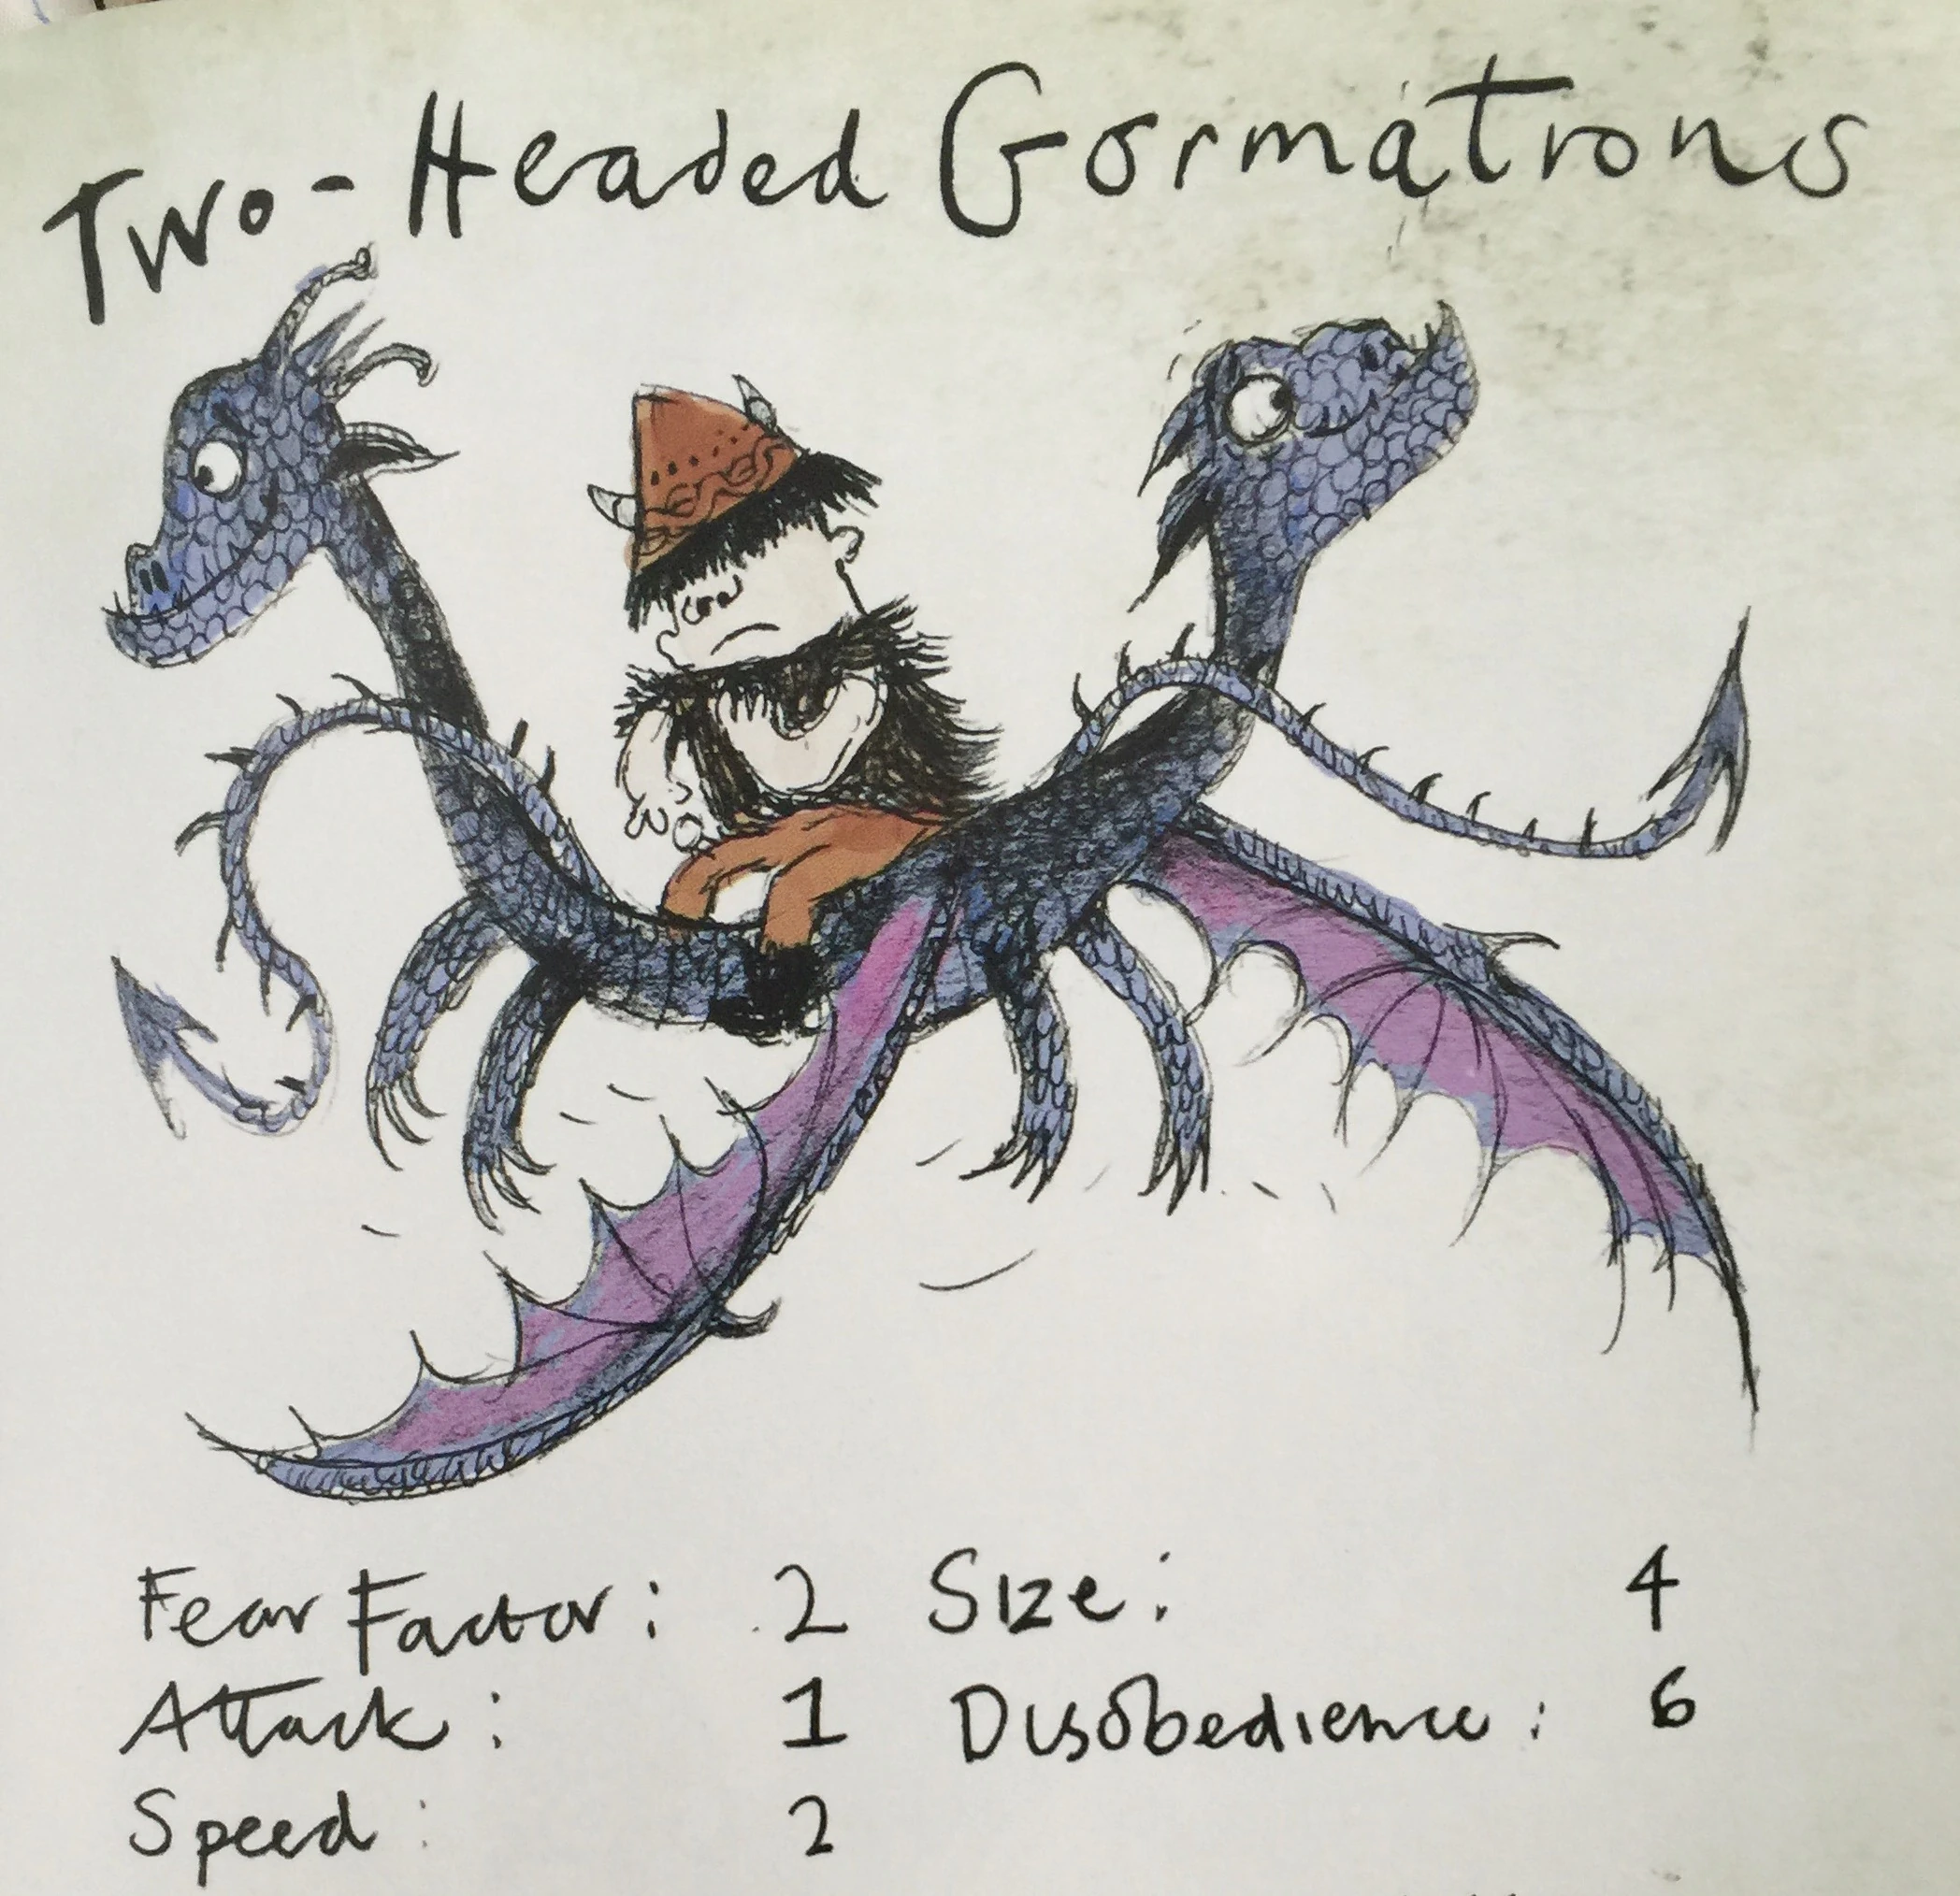 Two-Headed Gormatrons
Fear Factor: 2 Size: 4
Attack: 1 Disobedience: 6
Speed: 2